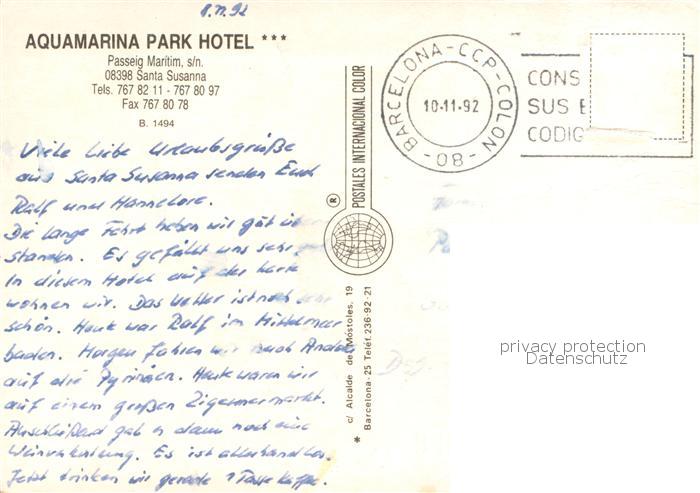 8.11.92
AQUAMARINA PARK HOTEL ***
Passeig Marítim, s/n.
08398 Santa Susanna
Tels. 767 82 11 - 767 80 97
Fax 767 80 78
B. 1494
Viele liebe Urlaubsgrüße
aus Santa Susanna senden Euch
Ralf und Hannelore.
Die lange Fahrt haben wir gut über
standen. Es gefällt uns sehr
In diesem Hotel auf der Karte
wohnen wir. Das Wetter ist noch sehr
schön. Heute war Ralf im Mittelmeer
baden. Morgen fahren wir nach Andorra
auf die Pyrinäen. Heute waren wir
auf einem großen Zigeunermarkt.
Anschließend gab es dann noch eine
Weinverkostung. Es ist allerhand los.
Jetzt trinken wir gerade 1 Tasse Kaffee.
POSTALES INTERNACIONAL COLOR
®
* c/ Alcalde de Móstoles, 19
Barcelona-25 Teléf. 236-92-21
BARCELONA-CCP-COLON
10-11-92
-80-
CONS
SUS E
CODIG
privacy protection
Datenschutz